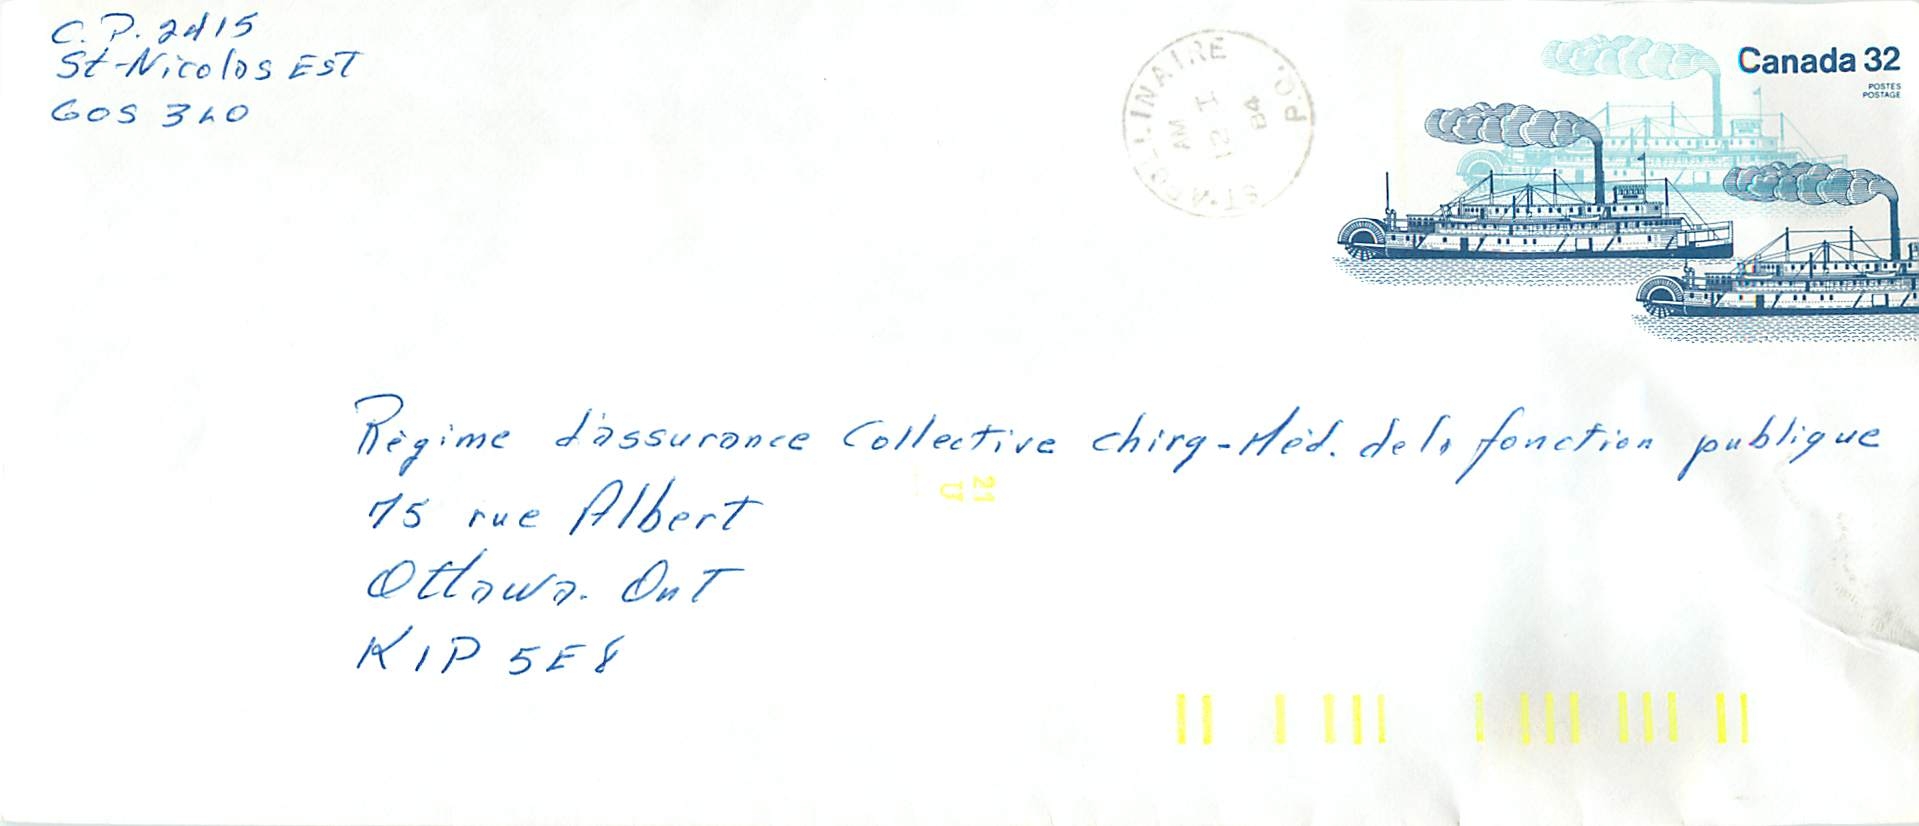 C.P. 2415
St-Nicolas EST
GOS 3LO
ST-APOLLINAIRE P.Q.
AM
21
84
Canada 32
POSTES
POSTAGE
Régime d'assurance Collective chirg-Méd. de la fonction publique
21
U
75 rue Albert
Ottawa. Ont
K1P 5E8